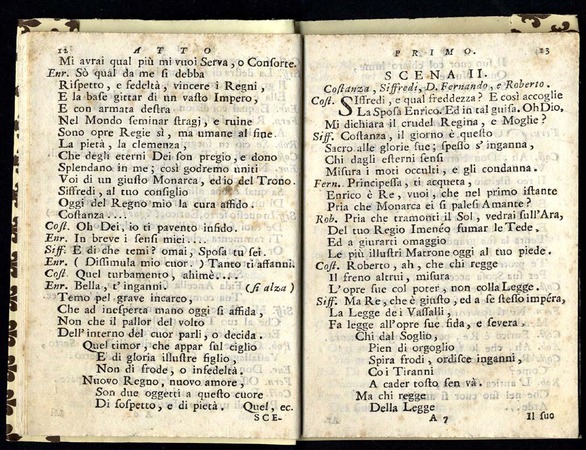 12 ATTO
Mi avrai qual più mi vuoi Serva, o Consorte.
Enr. Sò qual da me si debba
Rispetto, e fedeltà, vincere i Regni,
E la base gittar di un vasto Impero,
E con armata destra
Nel Mondo seminar stragi, e ruine
Sono opre Regie sì, ma umane al fine.
La pietà, la clemenza,
Che degli eterni Dei son pregio, e dono
Splendano in me; così godremo uniti
Voi di un giusto Monarca, ed io del Trono.
Siffredi, al tuo consiglio
Oggi del Regno mio la cura affido.
Costanza....
Cost. Oh Dei, io ti pavento infido.
Enr. In breve i sensi miei....
Siff. E di che temi? omai, Sposa tu sei.
Enr. ( Dissimula mio cuor. ) Tanto ti affanni.
Cost. Quel turbamento, ahimè....
Enr. Bella, t' inganni. (si alza)
Temo pel grave incarco,
Che ad inesperta mano oggi si affida,
Non che il pallor del volto
Dell' interno del cuor parli, o decida.
Quel timor, che appar sul ciglio
E di gloria illustre figlio,
Non di frode, o infedeltà.
Nuovo Regno, nuovo amore,
Son due oggetti a questo cuore
Di sospetto, e di pietà. Quel, ec.
SCE-
PRIMO. 13
SCENA II.
Costanza, Siffredi, D. Fernando, e Roberto.
Cost. Siffredi, e qual freddezza? E così accoglie
La Sposa Enrico? Ed in tal guisa. Oh Dio,
Mi dichiara il crudel Regina, e Moglie?
Siff. Costanza, il giorno è questo
Sacro alle glorie sue; spesso s' inganna,
Chi dagli esterni sensi
Misura i moti occulti, e gli condanna.
Fern. Principessa, ti acqueta,
Enrico è Re, vuoi, che nel primo istante
Pria che Monarca ei si palesi Amante?
Rob. Pria che tramonti il Sol, vedrai sull'Ara,
Del tuo Regio Imenéo fumar le Tede,
Ed a giurarti omaggio
Le più illustri Matrone oggi al tuo piede.
Cost. Roberto, ah, che chi regge
Il freno altrui, misura
L' opre sue col poter, non colla Legge.
Siff. Ma Re, che è giusto, ed a se stesso impéra,
La Legge de i Vassalli,
Fa legge all'opre sue fida, e severa.
Chi dal Soglio,
Pien di orgoglio
Spira frodi, ordisce inganni,
Co i Tiranni
A cader tosto sen và.
Ma chi regge
Della Legge
A 7 Il suo